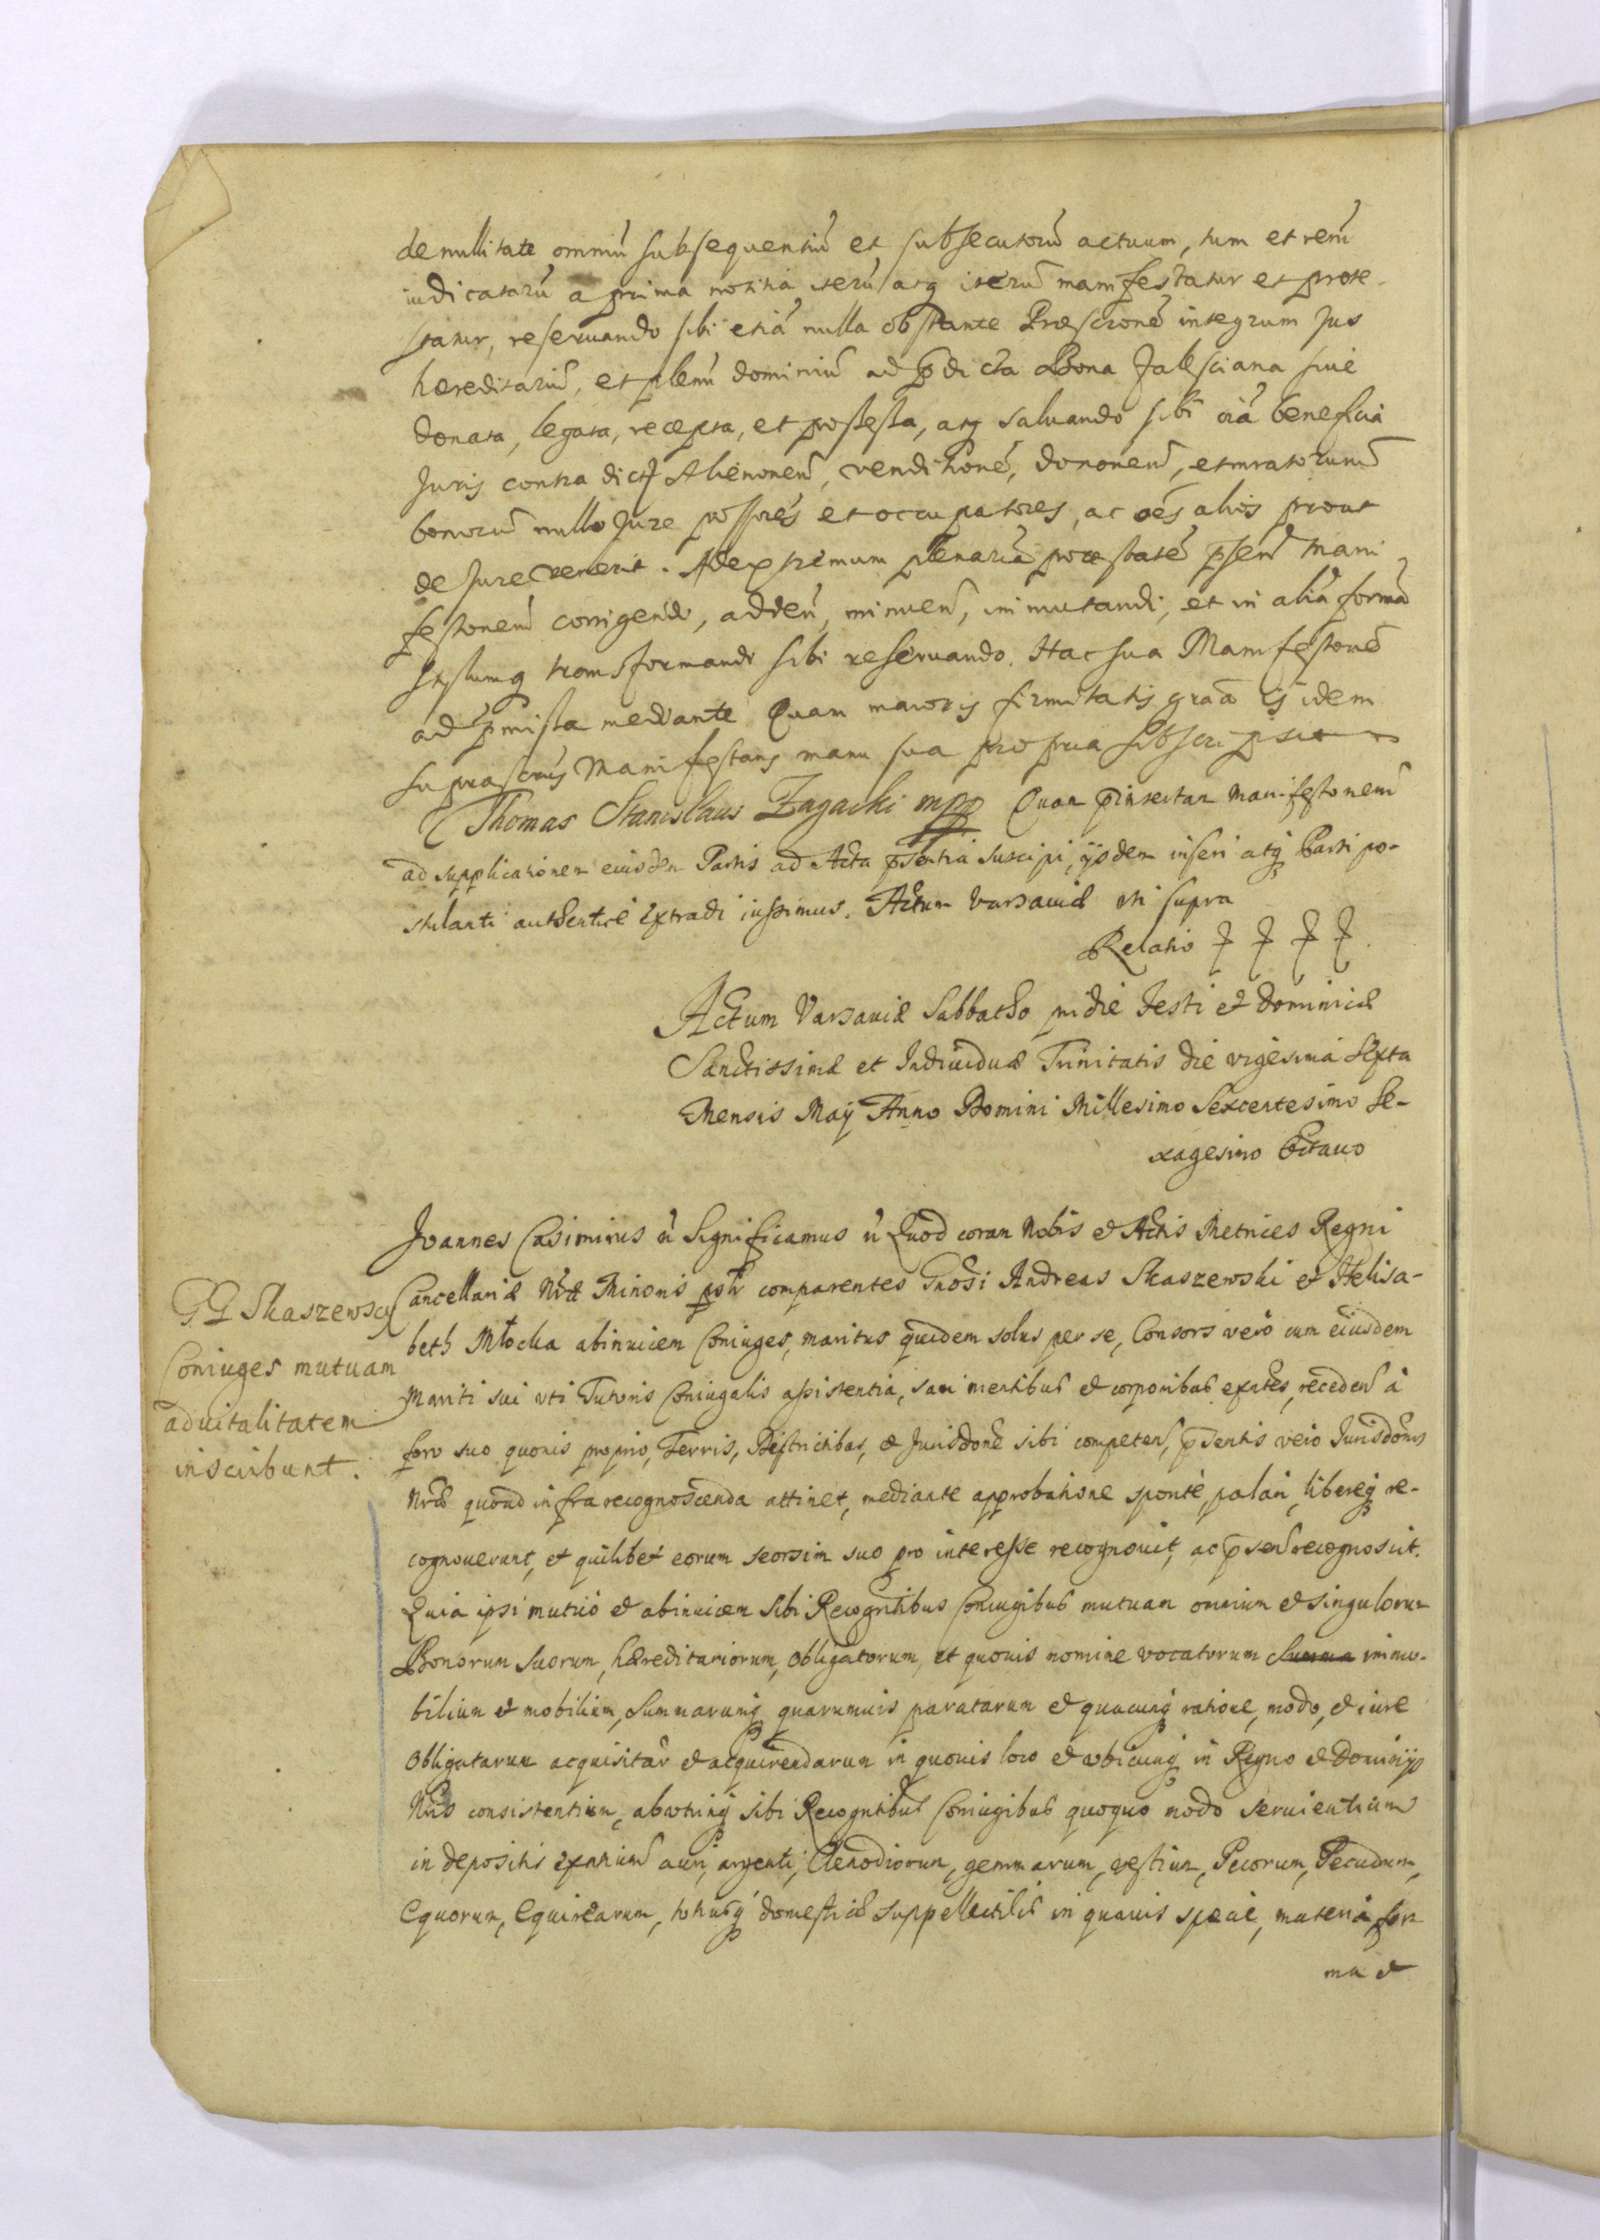 de nullitate omniũ subsequentiũ et subsecutorũ actuum, tum et rerũ
iudicatarũ a prima notitia iterũ atq iterũ manifestatur et prote-
statur, reseruando sibi etiã nulla obstante Præscrionẽ integrum Jus
hæreditariũ, et plenũ dominiũ ad p̄dicta Bona Jalesciana siue
donata, legata, recepta, et possessa, atq saluando sibi oĩa beneficia
Juris contra dict Alienonem, venditionẽ, dononem,
bonorũ nullo Jure possores et occupatores, ac oẽs alios prout
de Jure venerit. Ad extremum plenariã potestatẽ p̄sen Mani-
festonem corrigendi, adden, minuen, immutandi, et in aliã formã
stylumq transformandi sibi reseruando. Hac sua Manifestonẽ
ad p̄missa mediante Quam maioris firmitatis grãa is idem
suprascrus Manifestans manu sua propria subscripsit
Thomas Stanislaus Zagacki mpp Quam p̄insertam Manifestonem
ad supplicationem eiusdem Partis ad Acta p̄sentia suscipi, ijsdem inseri atq Parti po-
stulanti authentice extradi iussimus. Actum Varsauiæ uti supra
Relatio
Actum Varsauiæ Sabbatho pridie Festi et Dominicæ
Sanctissimæ et Indiuiduæ Trinitatis die vigesima sexta
Mensis Maij Anno Domini Millesimo Sexcentesimo Se-
xagesimo Octauo
GG Skaszewscy
Coniuges mutuam
aduitalitatem
inscribunt.
Joannes Casimirus ũ Significamus ũ Quod coram Nobis et Actis Metrices Regni
Cancellariæ Nræ Minoris psltr comparentes Gnosi Andreas Skaszewski et Helisa-
beth Młocka abinuicem Coniuges, maritus quidem solus per se, Consors vero cum eiusdem
Mariti sui uti Tutoris Coniugalis assistentia, sani mentibus et corporibus exntes, receden à
foro suo quouis proprio, Terris, Districtibus, et Jurisdone sibi competen, p̄sentis vero Jurisdonis
Nræ quoad infra recognoscenda attinet, mediante approbatione sponte, palam, libereq re-
cognouerunt, et quilibet eorum seorsim suo pro interesse recognouit, ac p̄sen recognoscit.
Quia ipsi mutuo et abinuicem sibi Recogntibus Coniugibus mutuam omnium et singulorum
Bonorum suorum, hæreditariorum, obligatorum, et quouis nomine vocatorum Summa immo-
bilium et mobilium, Summarumq quarumuis paratarum et quacunq ratione, modo, et iure
obligatarum acquisitar et acquirendarum in quouis loco et vbicunq in Regno et Dominijs
Nris consistentium, abutrinq sibi Recogntibus Coniugibus quoquo modo seruientium
in depositis exntium auri, argenti, Clenodiorum, gemmarum, vestium, Pecorum, Pecudum,
Equorum, Equirearum, totiusq domesticæ suppellectilis in quauis specie, materia, for-
ma et